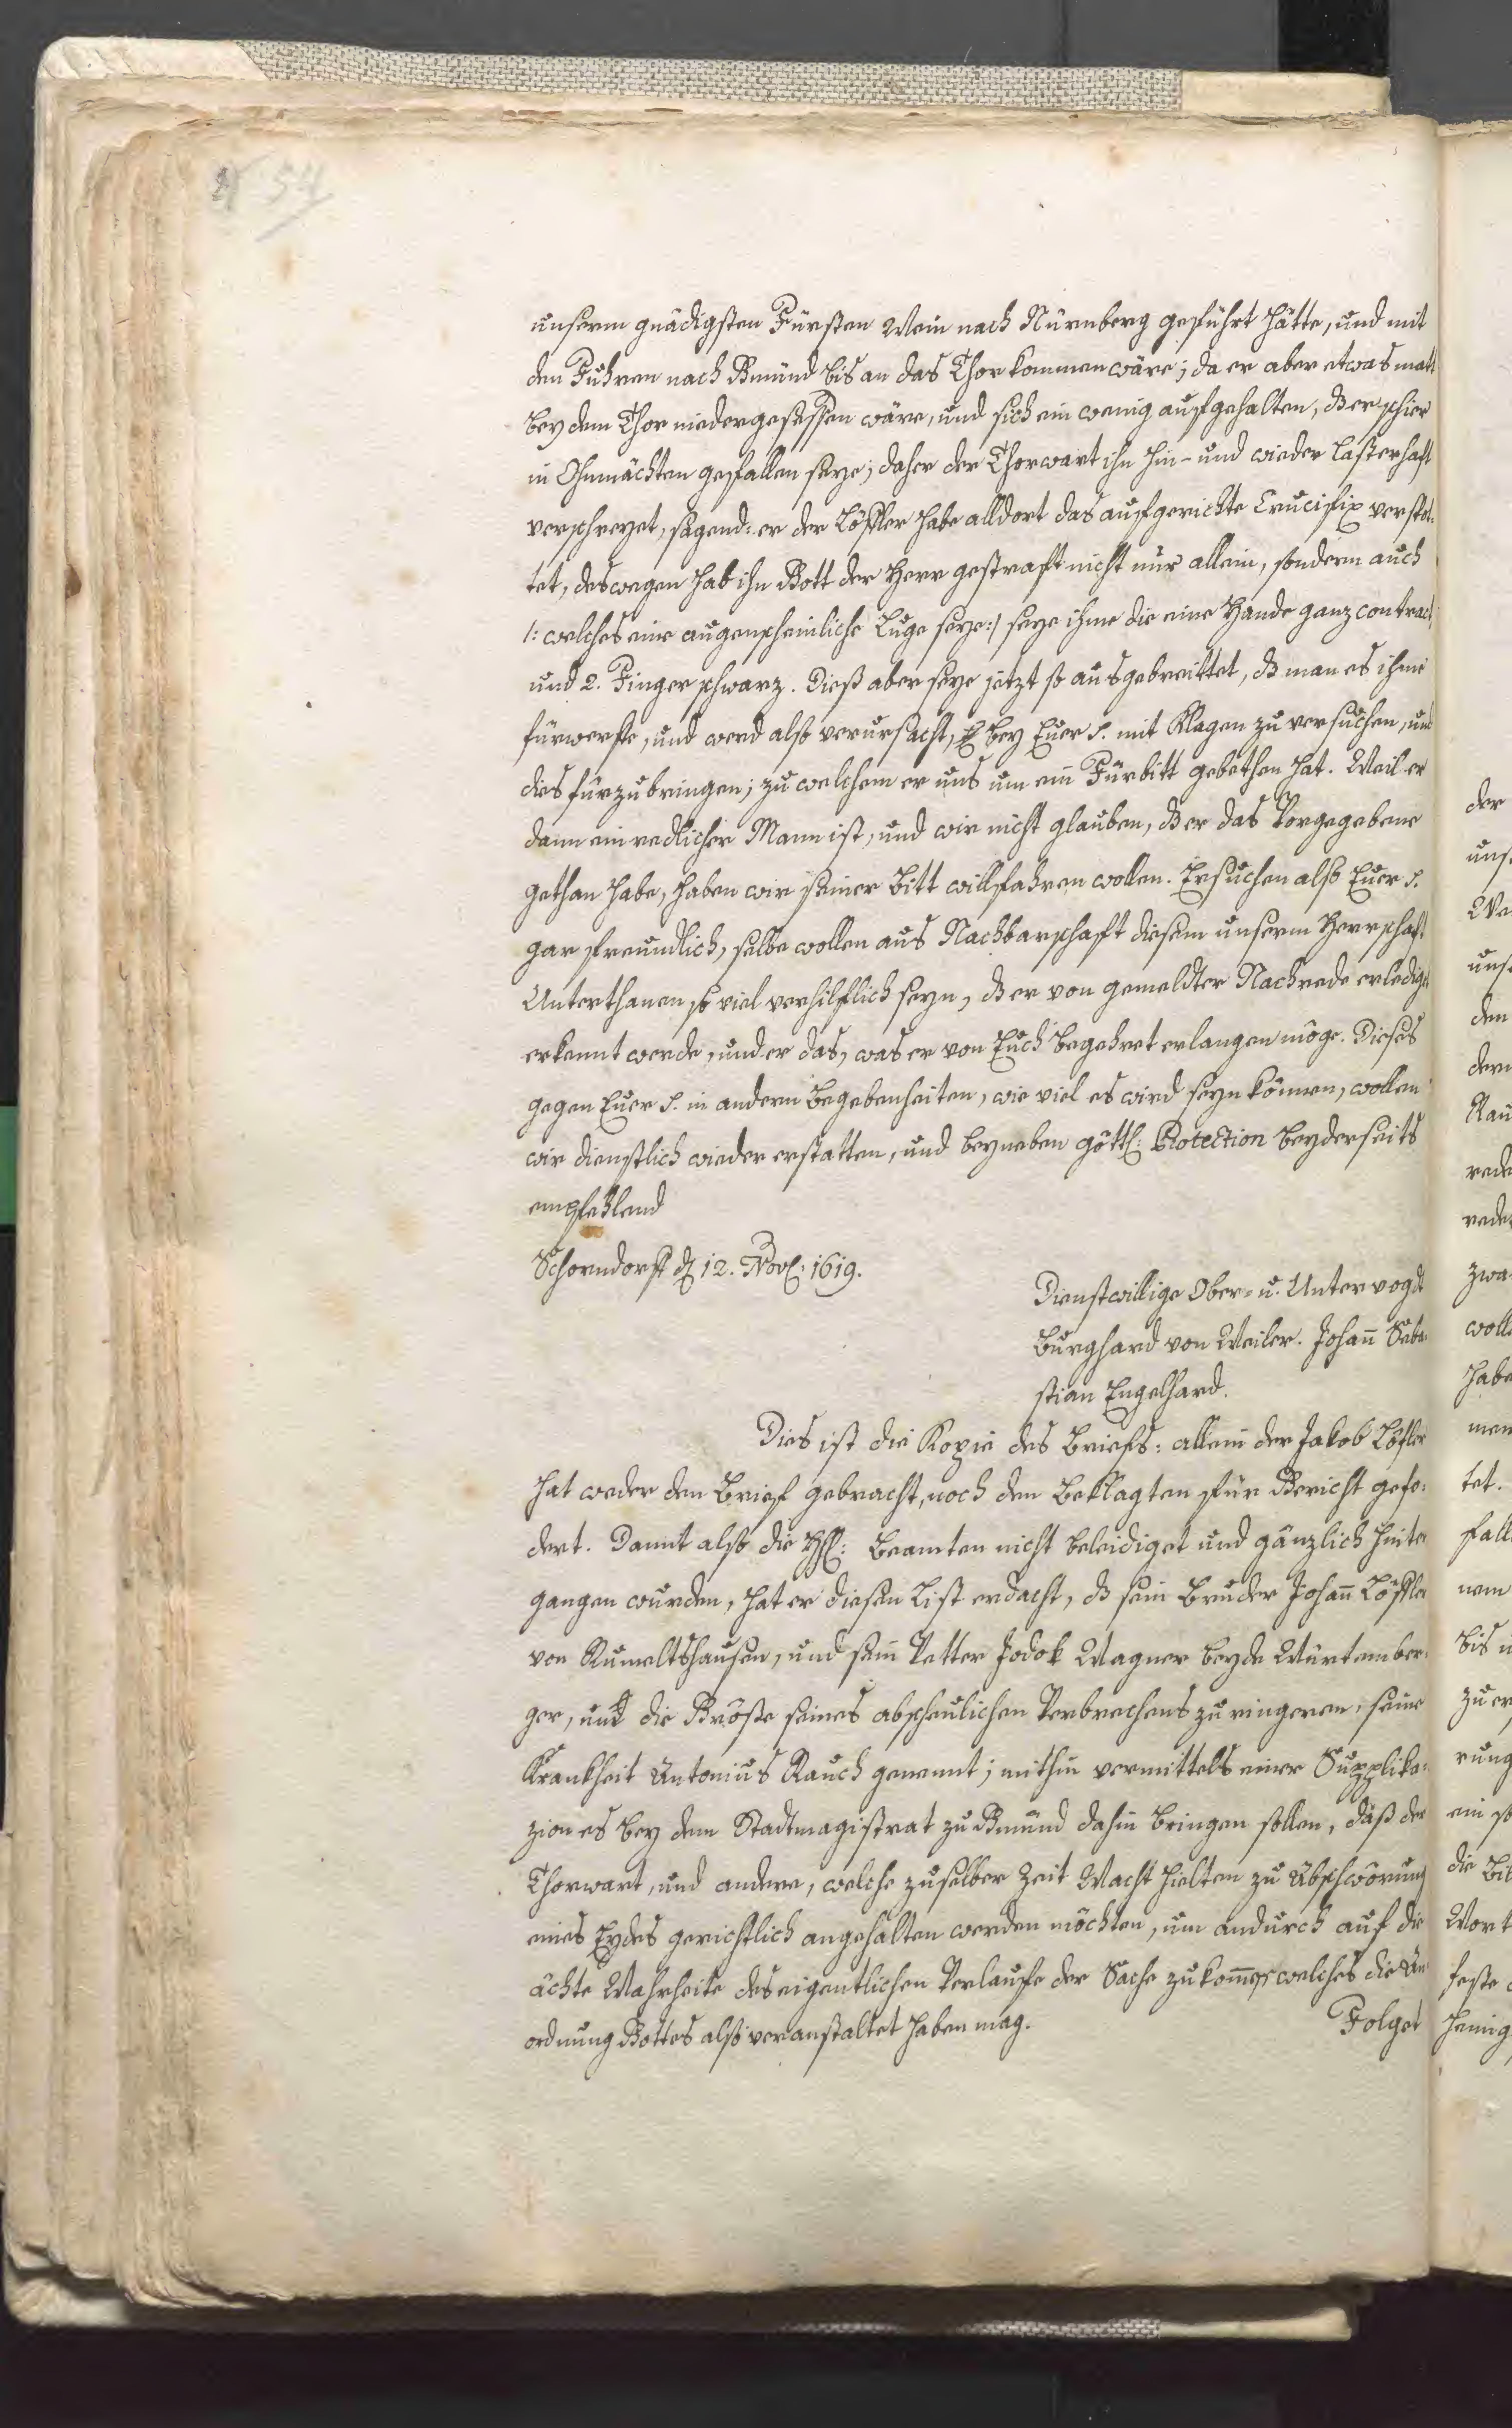 54
unserm gnädigsten Fürsten Wein nach Nürnberg geführt hätte, und mit
den Fuhren nach Gmünd bis an das Thor kommen wäre; da er aber etwas matt
bey dem Thor niedergesessen wäre, und sich ein wenig aufgehalten, dß er schier
in Ohnmächten gefallen seye; daher der Thorwart ihn hin- und wieder lasterhaft
verschreyet, sagend: er der Löffler habe alldort das aufgerichte Crucifix verspot-
tet, deswegen hab ihn Gott der Herr gestraft nicht nur allein, sondern auch
/: welches eine augenscheinliche Luge seye :/ seye ihme die eine Hande ganz contract
und 2. Finger schwarz. Dieß aber seye jetzt so ausgebreittet, dß man es ihme
fürwerfte, und werd also verursacht, bey Euer S. mit Klagen zu versuchen, und
dies fürzubringen; zu welchem er uns um ein Fürbitt gebethen hat. Weil er
dann ein redlicher Mann ist, und wir nicht glauben, dß er das Vorgegebene
gethan habe, haben wir seiner Bitt willfahren wollen. Ersuchen also Euer S.
gar freundlich, selbe wollen aus Nachbarschaft diesem unserm Herrschaft
Unterthanen so viel verhilflich seyn, dß er von gemeldter Nachrede erlediget
erkennt werde, und er das, was er von Euch begehret erlangen möge. Dieses
gegen Euer S. in andern Begebenheiten, wie viel es wird seyn können, wollen
wir dienstlich wieder erstatten, und beyneben göttl: Protection beyderseits
empfehlend
Schorndorf d 12. Nov: 1619.
Dienstwillige Ober- u. Untervogdt
Burghard von Weiler. Johan̄ Seba-
stian Engelhard.
Dies ist die Kopie des Briefs: allein der Jakob Löfler
hat weder den Brief gebracht, noch den Beklagten für Gericht gefo-
dert. Damit also die HH: Beamten nicht beleidiget und gänzlich hinter
gangen wurden, hat er diesen List erdacht, dß sein Bruder Johan̄ Löffler
von Rumeltshausen, und sein Vetter Jodok Wagner beyde Würtember-
ger, und die Größe seines abscheulichen Verbrechens zu ringeren, seine
Krankheit Antonius Rauch genennt; mithin vermittels einer Supplika-
zion es bey dem Stadtmagistrat zu Gmünd dahin bringen sollen, daß der
Thorwart, und andere, welche zu selber Zeit Wacht hielten zu Abschwörung
eines Eydes gerichtlich angehalten werden möchten, um andurch auf die
ächte Wahrheite des eigentlichen Verlaufe der Sache zu kom̄en, welches die An
ordnung Gottes also veranstaltet haben mag.
Folget
der
uns
We
uns
den
dern
Rau
rede
rede
zwa
woll
habe
men
tet.
fall
nem
bis
zu er
rung
ein so
die Bi
Wort
feste
heinig